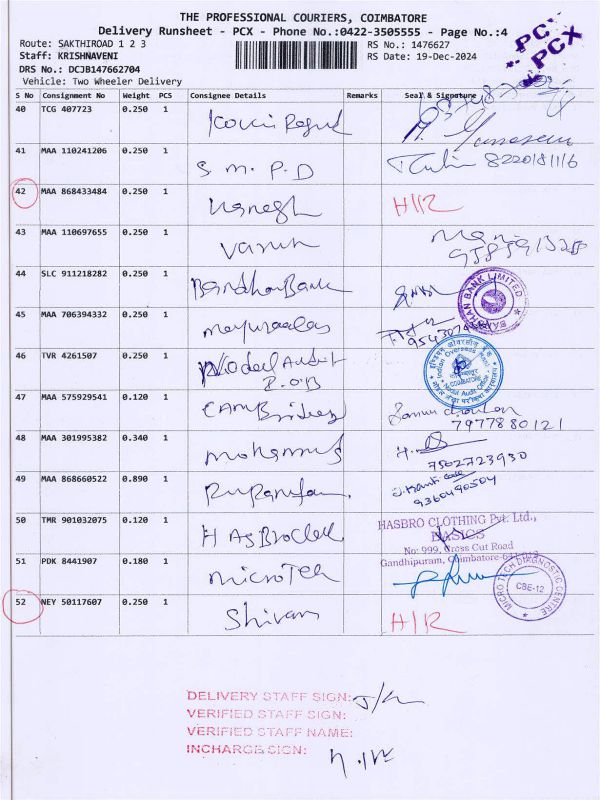 THE PROFESSIONAL COURIERS, COIMBATORE
Delivery Runsheet - PCX - Phone No.:0422-3505555 - Page No.:4
PCX
PCX
Route: SAKTHIROAD 1 2 3
RS No.: 1476627
Staff: KRISHNAVENI
RS Date: 19-Dec-2024
DRS No.: DCJB147662704
Vehicle: Two Wheeler Delivery
S No Consignment No Weight PCS Consignee Details Remarks Seal & Signature
40 TCG 407723 0.250 1
41 MAA 110241206 0.250 1 S. M. P. D 8220181116
42 MAA 868433484 0.250 1 H/R
43 MAA 110697655 0.250 1 Varun
44 SLC 911218282 0.250 1 Bandhan Bank BANDHAN BANK LIMITED
45 MAA 706394332 0.250 1
46 TVR 4261507 0.250 1 Nodal Audit
I.O.B
Indian Overseas Bank
COIMBATORE
47 MAA 575929541 0.120 1 7977880121
48 MAA 301995382 0.340 1 Mohammed 7502723930
49 MAA 868660522 0.890 1 9360490504
50 TMR 901032075 0.120 1 HASBRO CLOTHING Pvt. Ltd.,
BASICS
No: 999, Cross Cut Road
Gandhipuram, Coimbatore-641 012
51 PDK 8441907 0.180 1 MicroTech MICRO TECH DIAGNOSTIC CENTRE
CBE-12
52 NEY 50117607 0.250 1 Shivam H/R
DELIVERY STAFF SIGN:
VERIFIED STAFF SIGN:
VERIFIED STAFF NAME:
INCHARGE SIGN: